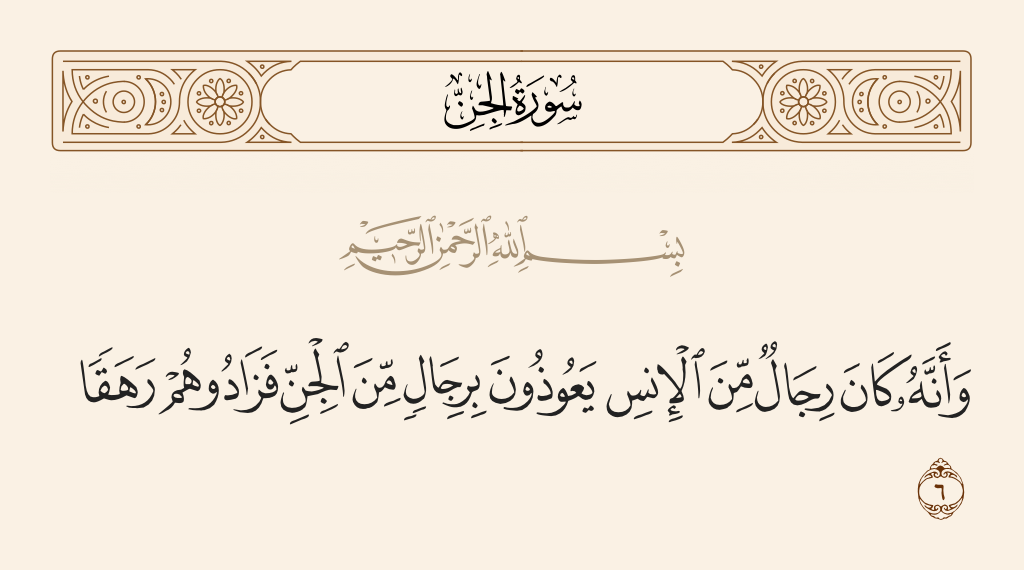 سُورَةُ الجِنِّ
بِسْمِ ٱللَّهِ ٱلرَّحْمَٰنِ ٱلرَّحِيمِ
وَأَنَّهُۥ كَانَ رِجَالٌ مِّنَ ٱلْإِنسِ يَعُوذُونَ بِرِجَالٍ مِّنَ ٱلْجِنِّ فَزَادُوهُمْ رَهَقًا
٦